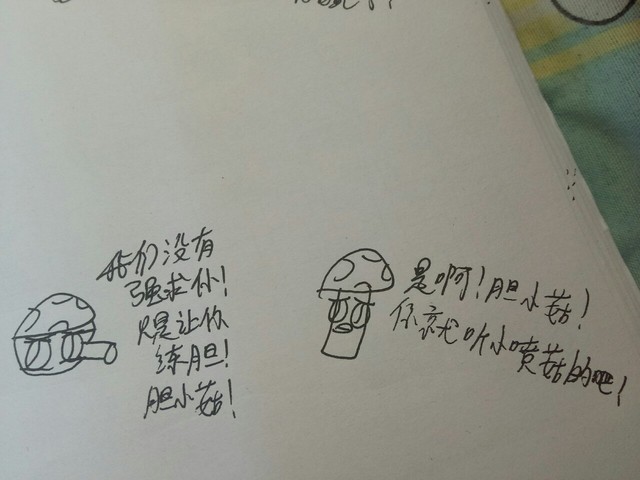 我们没有
强求你！
只是让你
练胆！
胆小菇！
是啊！胆小菇！
你就听小喷菇的吧！